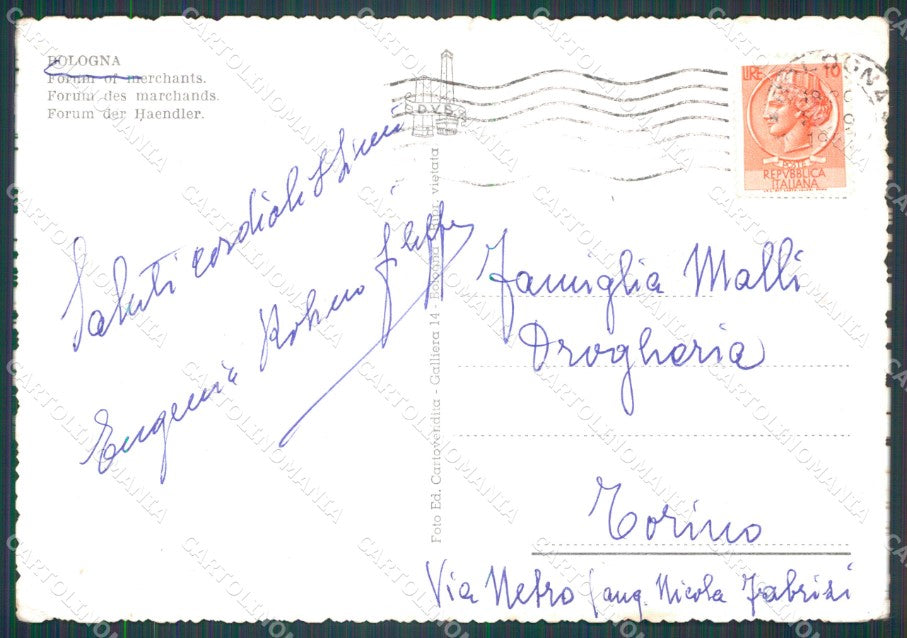 BOLOGNA
Forum of merchants.
Forum des marchands.
Forum der Haendler.
LIRE 10
POSTE
REPVBBLICA
ITALIANA
Saluti cordiali
Eugenia
Foto Ed. Cartovendita - Galliera 14 - Bologna vietata
Famiglia Malli
Drogheria
Torino
Via Netro (ang. Nicola Fabrizi
CARTOLINOMANIA